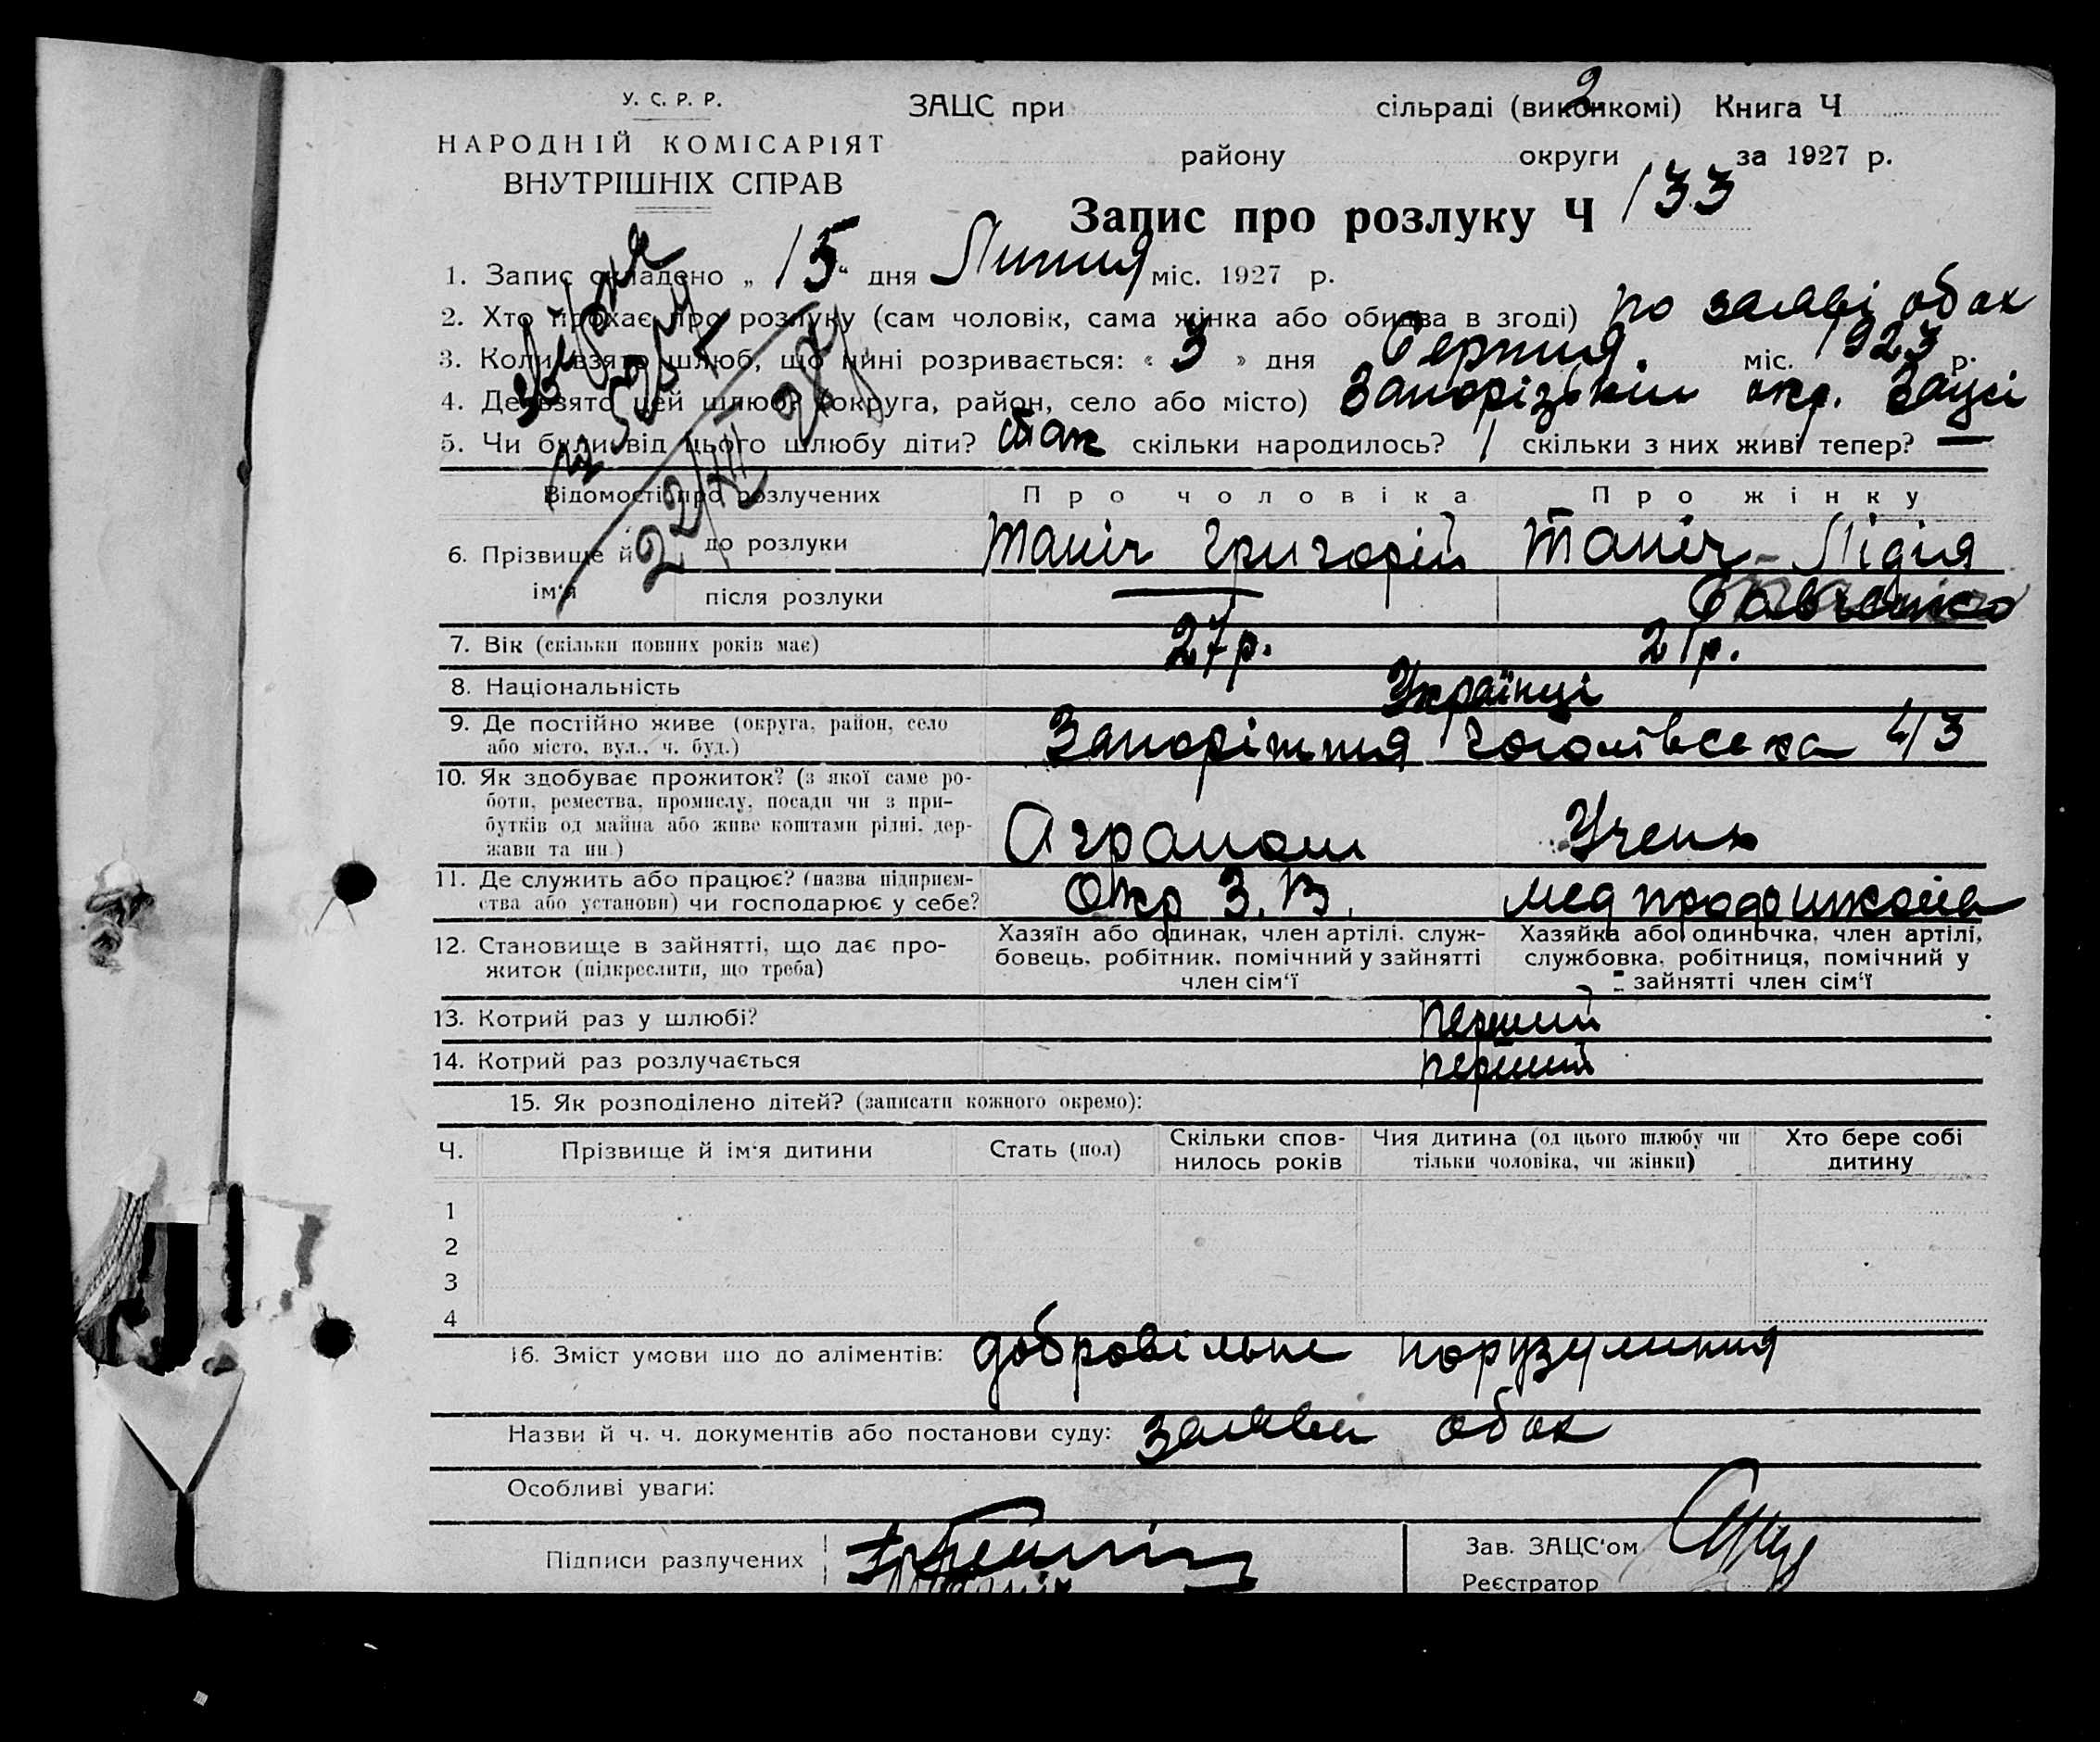 У. С. Р. Р.
НАРОДНІЙ КОМІСАРІЯТ
ВНУТРІШНІХ СПРАВ
ЗАЦС при сільраді (виконкомі) Книга Ч
2
району округи за 1927 р.
Запис про розлуку Ч 133
1. Запис складено „ 15 “ дня Липня міс. 1927 р.
2. Хто прохає про розлуку (сам чоловік, сама жінка або обидва в згоді) по заяві обох
3. Коли взято шлюб, що нині розривається: « 3 » дня Серпня міс. 1923 р.
4. Де взято цей шлюб (округа, район, село або місто) Запорізькім окр. Зацсі
5. Чи були від цього шлюбу діти? так скільки народилось? 1 скільки з них живі тепер? —
22/XII 287
Відомості про розлучених Про чоловіка Про жінку
6. Прізвище й ім‘я до розлуки Таніч Григорій Таніч - Лідія
після розлуки — Савченко
7. Вік (скільки повних років має) 27 р. 21 р.
8. Національність Українці
9. Де постійно живе (округа, район, село
або місто, вул., ч. буд.) Запоріжжя Гоголівська 4/3
10. Як здобуває прожиток? (з якої саме ро-
боти, ремества, промислу, посади чи з при-
бутків од майна або живе коштами рідні, дер-
жави та ин.) Аграном Учень
11. Де служить або працює? (назва підприєм-
ства або установи) чи господарює у себе? Окр З. В. мед
12. Становище в зайнятті, що дає про-
житок (підкреслити, що треба)
Хазяїн або одинак, член артілі, служ-
бовець, робітник, помічний у зайнятті
член сім‘ї
Хазяйка або одиночка, член артілі,
службовка, робітниця, помічний у
зайнятті член сім‘ї
13. Котрий раз у шлюбі? перший
14. Котрий раз розлучається перший
15. Як розподілено дітей? (записати кожного окремо):
Ч. Прізвище й ім‘я дитини Стать (пол) Скільки спов-
нилось років Чия дитина (од цього шлюбу чи
тільки чоловіка, чи жінки) Хто бере собі
дитину
1
2
3
4
16. Зміст умови що до аліментів: добровільне порузуминня
Назви й ч. ч. документів або постанови суду: заяви обох
Особливі уваги:
Підписи разлучених
Зав. ЗАЦС‘ом
Реєстратор